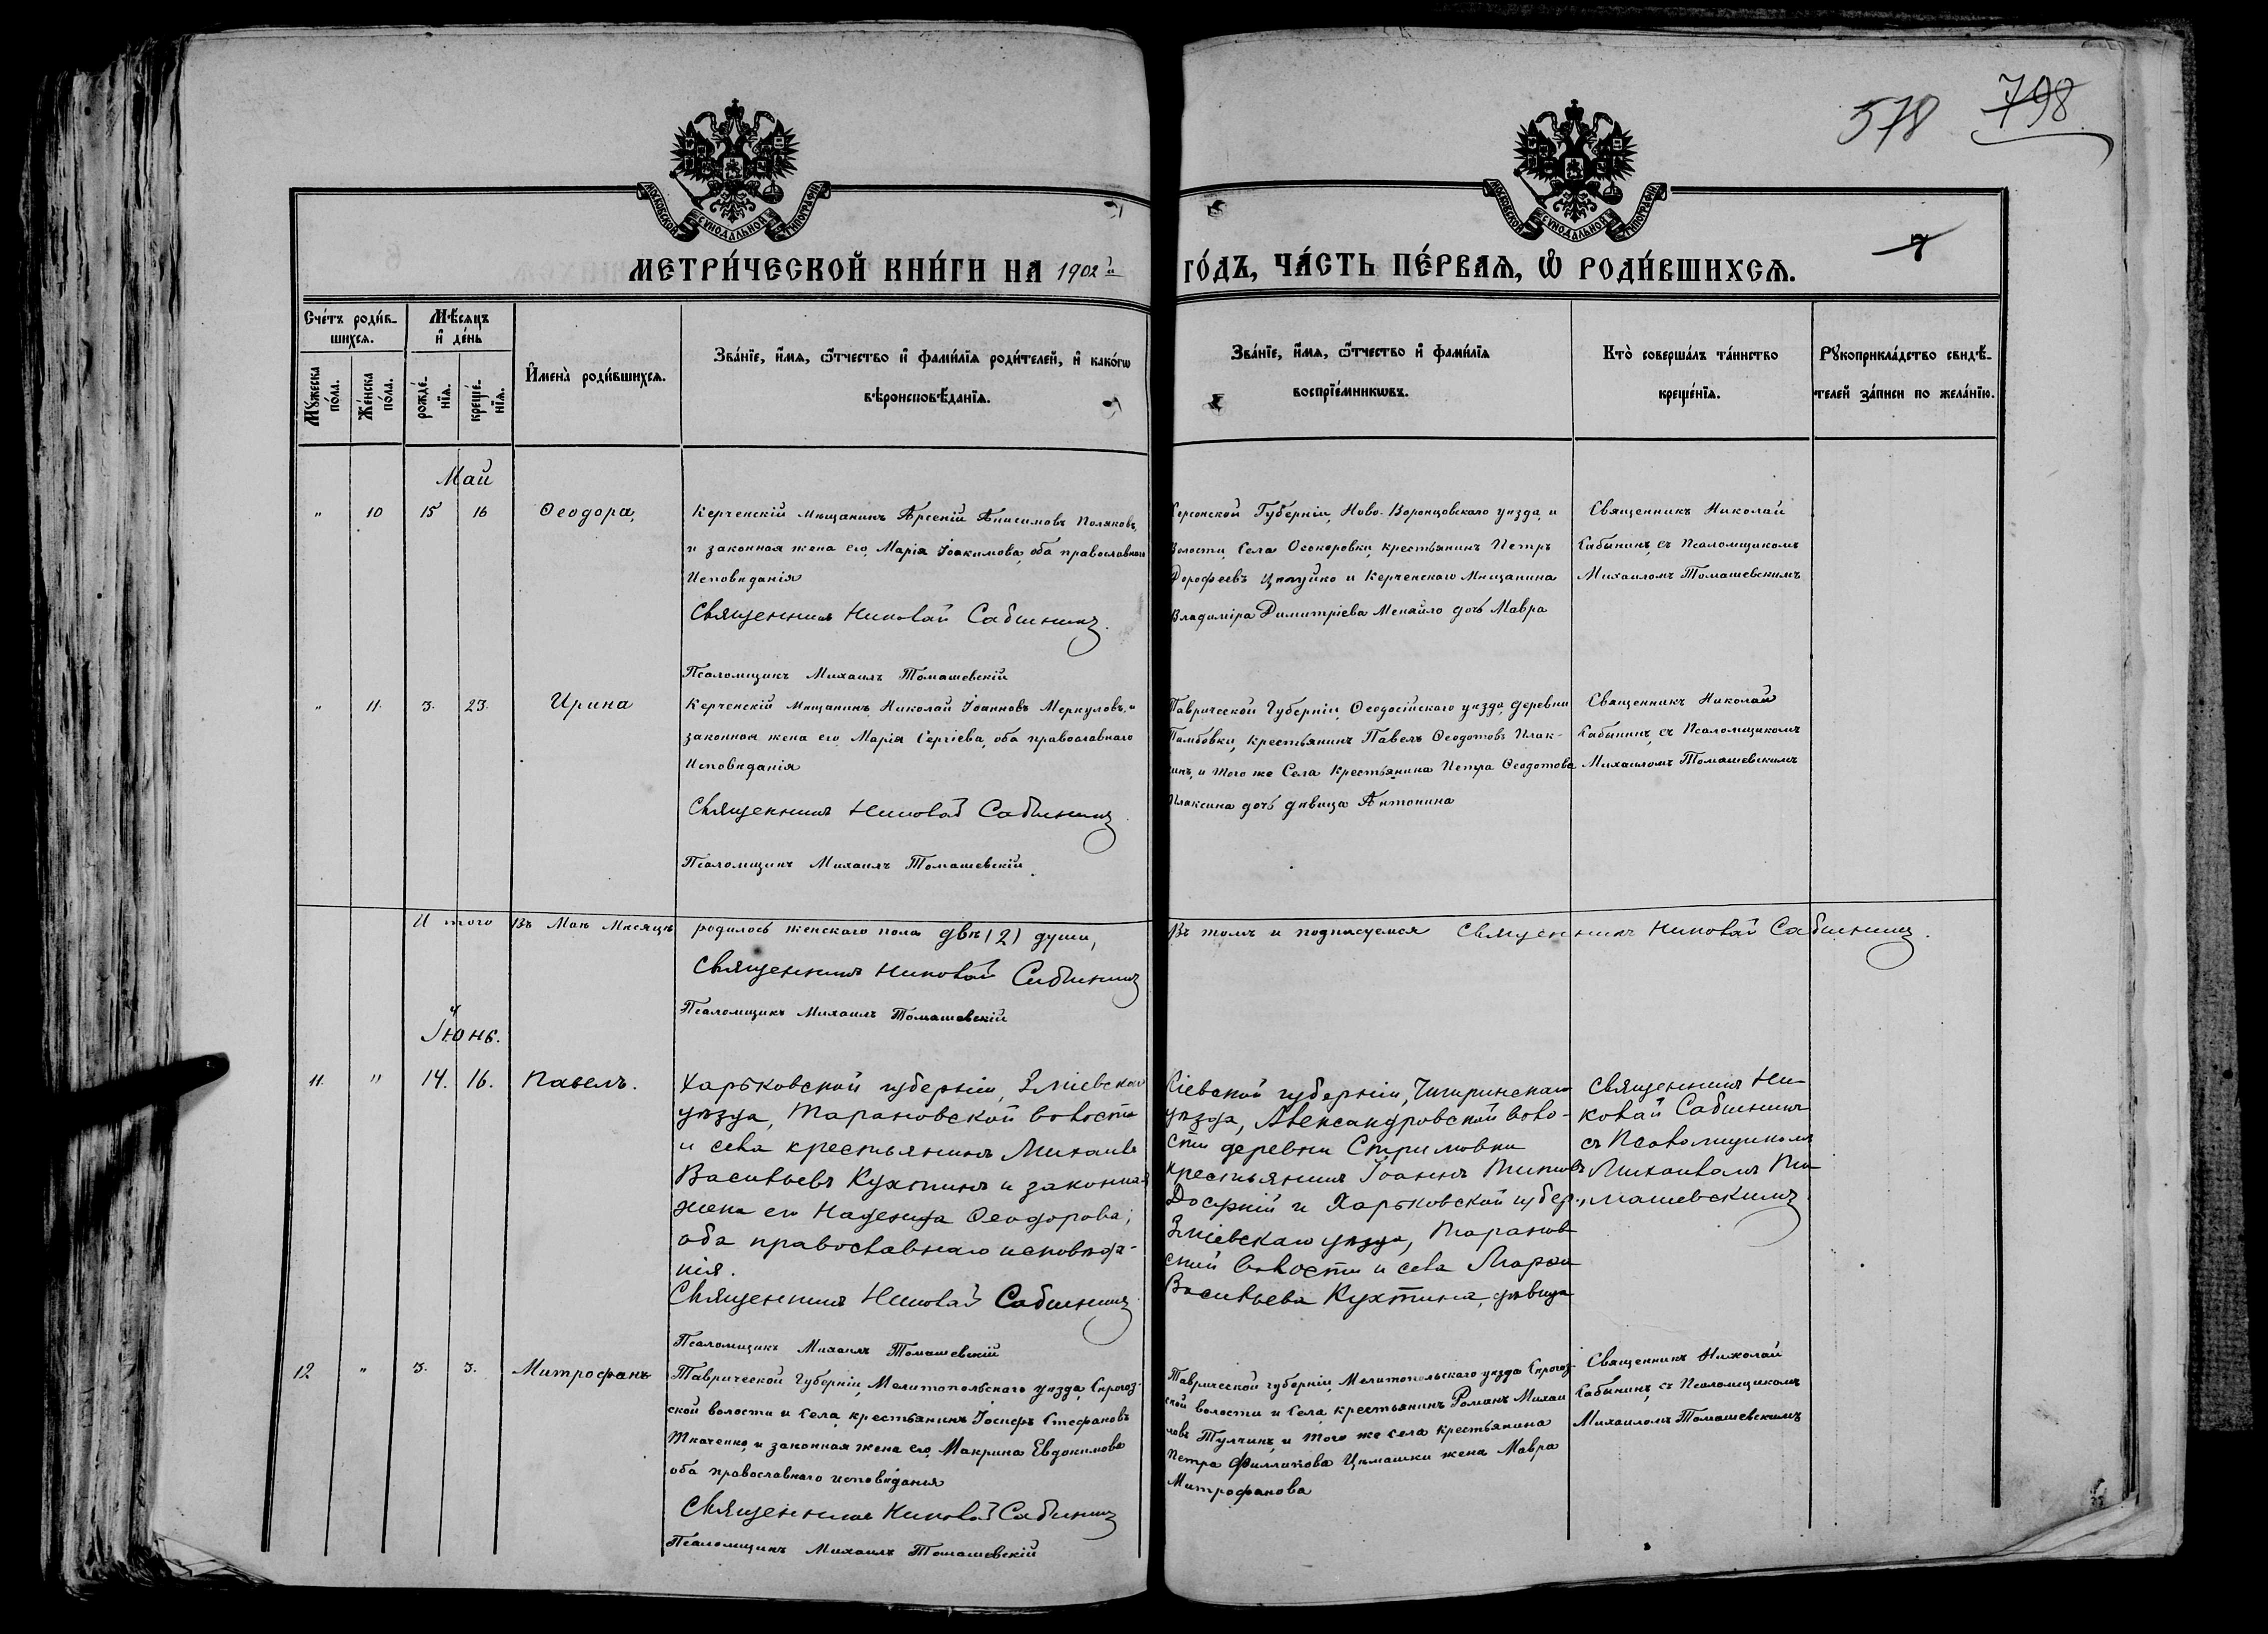 578 798
МОСКОВСКОЙ СѴНОДАЛЬНОЙ ТИПОГРАФІИ
МОСКОВСКОЙ СѴНОДАЛЬНОЙ ТИПОГРАФІИ
7
МЕТРИ́ЧЕСКОЙ КНИ́ГИ НА 1902й ГО́ДЪ, ЧА́СТЬ ПЕ́РВАЯ, Ѽ РОДИ́ВШИХСЯ.
Сче́тъ роди́в-
шихся.
Му́жеска по́ла.
Же́нска по́ла.
Мѣ́сяцъ
и́ де́нь
рожде́-
нія.
креще́-
нія.
И҆мена̀ роди́вшихся.
Зва́ніе, и҆́мя, ѻ҆́тчество и҆ фами́лія роди́телей, и҆ како́гѡ
вѣроисповѣ́данія.
Зва́ніе, и҆́мя, ѻ҆́тчество и҆ фами́лія
воспріе́мникѡвъ.
Кто̀ соверша́лъ та́инство
креще́нія.
Рꙋкоприкла́дство свидѣ́-
телей за́писи по жела́нію.
Май
" 10 15 16 Ѳеодора,
Керченскій мѣщанинъ Арсеній Анисимовъ Поляковъ,
и законная жена его, Марія Іоакимова, оба православнаго
Исповѣданія
Священникъ Николай Сабынинъ.
Псаломщикъ Михаилъ Томашевскій
Херсонской Губерніи, Ново-Воронцовскаго уѣзда, и
Волости, Села Осокоровки, крестьянинъ Петръ
Дорофеевъ и Керченскаго Мѣщанина
Владиміра Димитріева Менайло дочь Мавра
Священникъ Николай
Сабынинъ, съ Псаломщикомъ
Михаиломъ Томашевскимъ
" 11. 3. 23. Ирина
Керченскій Мѣщанинъ Николай Іоанновъ Меркуловъ, и
законная жена его, Марія Сергіева, оба православнаго
Исповѣданія
Священникъ Николай Сабынинъ.
Псаломщикъ Михаилъ Томашевскій
Таврической Губерніи, Ѳеодосійскаго уѣзда, деревни
Тамбовки, крестьянинъ Павелъ Ѳеодотовъ Плак-
инъ, и того же Села Крестьянина Петра Ѳеодотова
Плаксина дочь дѣвица Антонина
Священникъ Николай
Сабынинъ, съ Псаломщикомъ
Михаиломъ Томашевскимъ
И того Въ Маѣ Мѣсяцѣ родилось женскаго пола двѣ (2) души, Въ томъ и подписуемся Священникъ Николай Сабынинъ.
Священникъ Николай Сабынинъ
Псаломщикъ Михаилъ Томашевскій
Іюнь.
11. " 14. 16. Павелъ.
Харьковской губерніи, Зміевскаго
уѣзда, Тарановской волости
и села крестьянинъ Михаилъ
Васильевъ Кухтинъ и законная
жена его Надежда Ѳеодорова;
оба православнаго исповѣда-
нія.
Священникъ Николай Сабынинъ
Псаломщикъ Михаилъ Томашевскій
Кіевской губерніи, Чигиринскаго
уѣзда, Александровской воло-
сти деревни Стримовки
крестьянинъ Іоаннъ
и Харьковской губер.,
Зміевскаго уѣзда, Таранов
ской волости и села Марѳа
Васильева Кухтина, дѣвица
Священникъ Ни-
колай Сабынинъ
съ Псаломщикомъ
Михаиломъ То-
машевскимъ
12 " 3. 3. Митрофанъ
Таврической Губерніи, Мелитопольскаго уѣзда, Сирогоз-
ской волости и Села, крестьянинъ Іосифъ Стефановъ
Ткаченко, и законная жена его, Макрина Евдокимова
оба православнаго исповѣданія
Священникъ Николай Сабынинъ
Псаломщикъ Михаилъ Томашевскій
Таврической губерніи, Мелитопольскаго уѣзда Сирогоз-
ской волости и Села, крестьянинъ Романъ Михаи
ловъ Тулчинъ, и того же села крестьянина
Петра Филлипова Цымашки жена Мавра
Митрофанова
Священникъ Николай
Сабынинъ, съ Псаломщикомъ
Михаиломъ Томашевскимъ